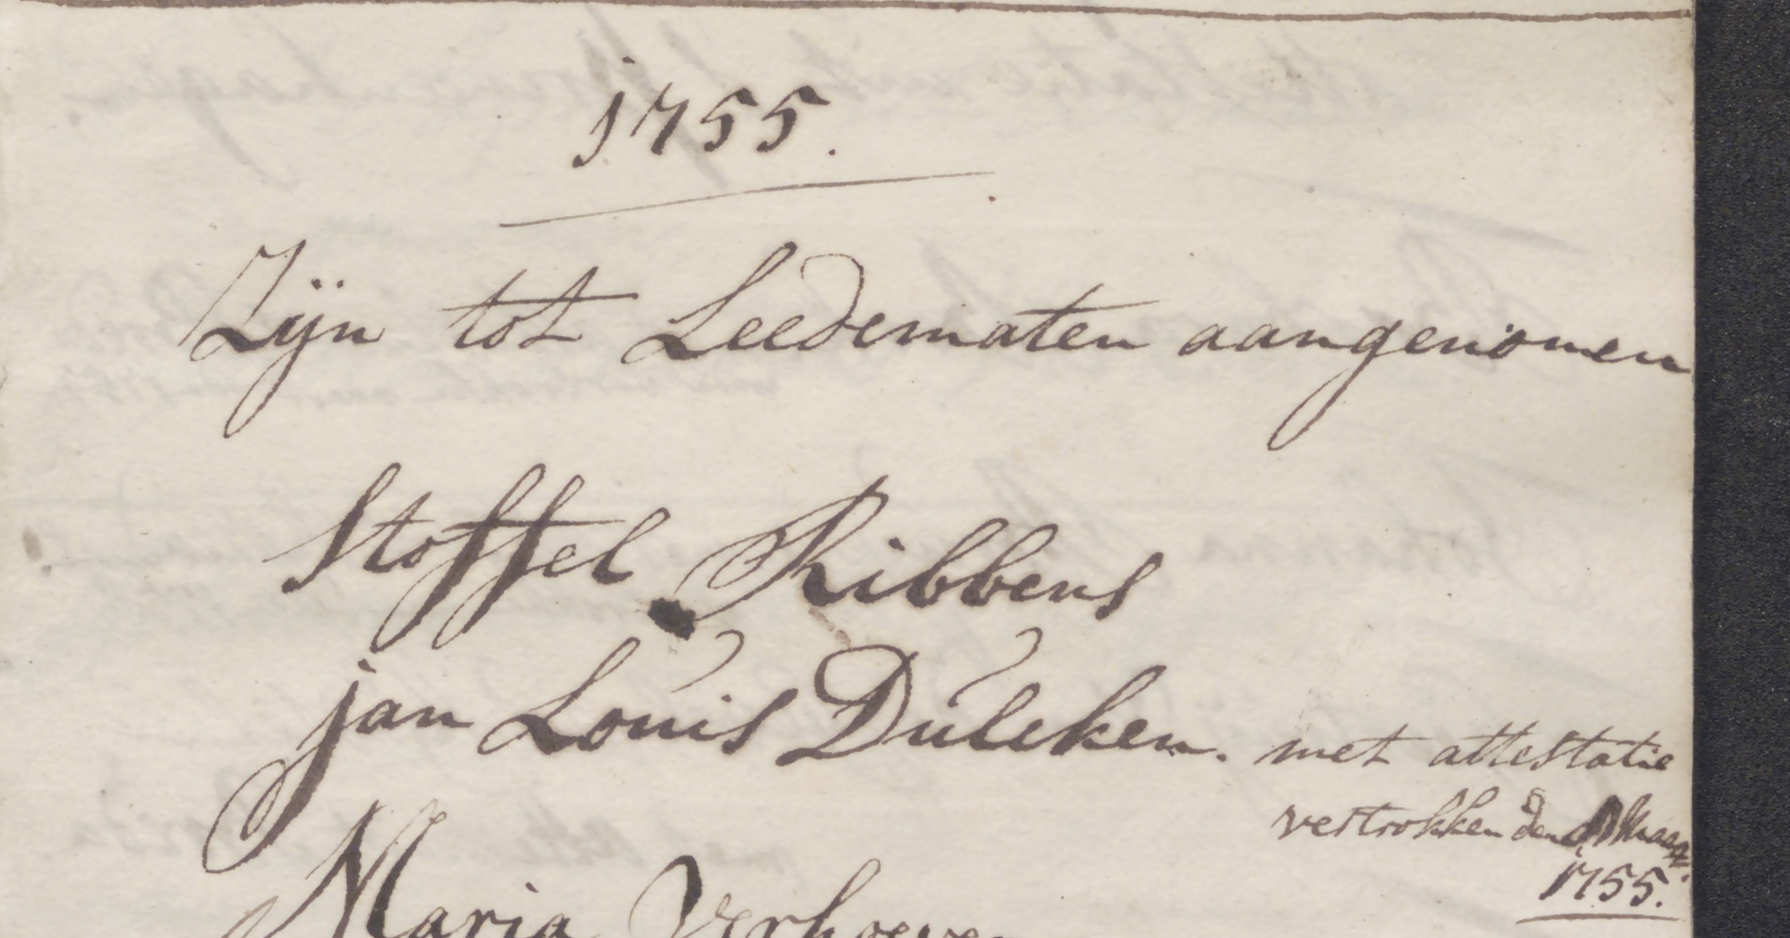 1755.
Zijn tot Leedematen aangenomen
Stoffel Ribbens
jan Louis Dulcken. met attestatie
vertrokken den Maart
1755.
Maria Verhoeven